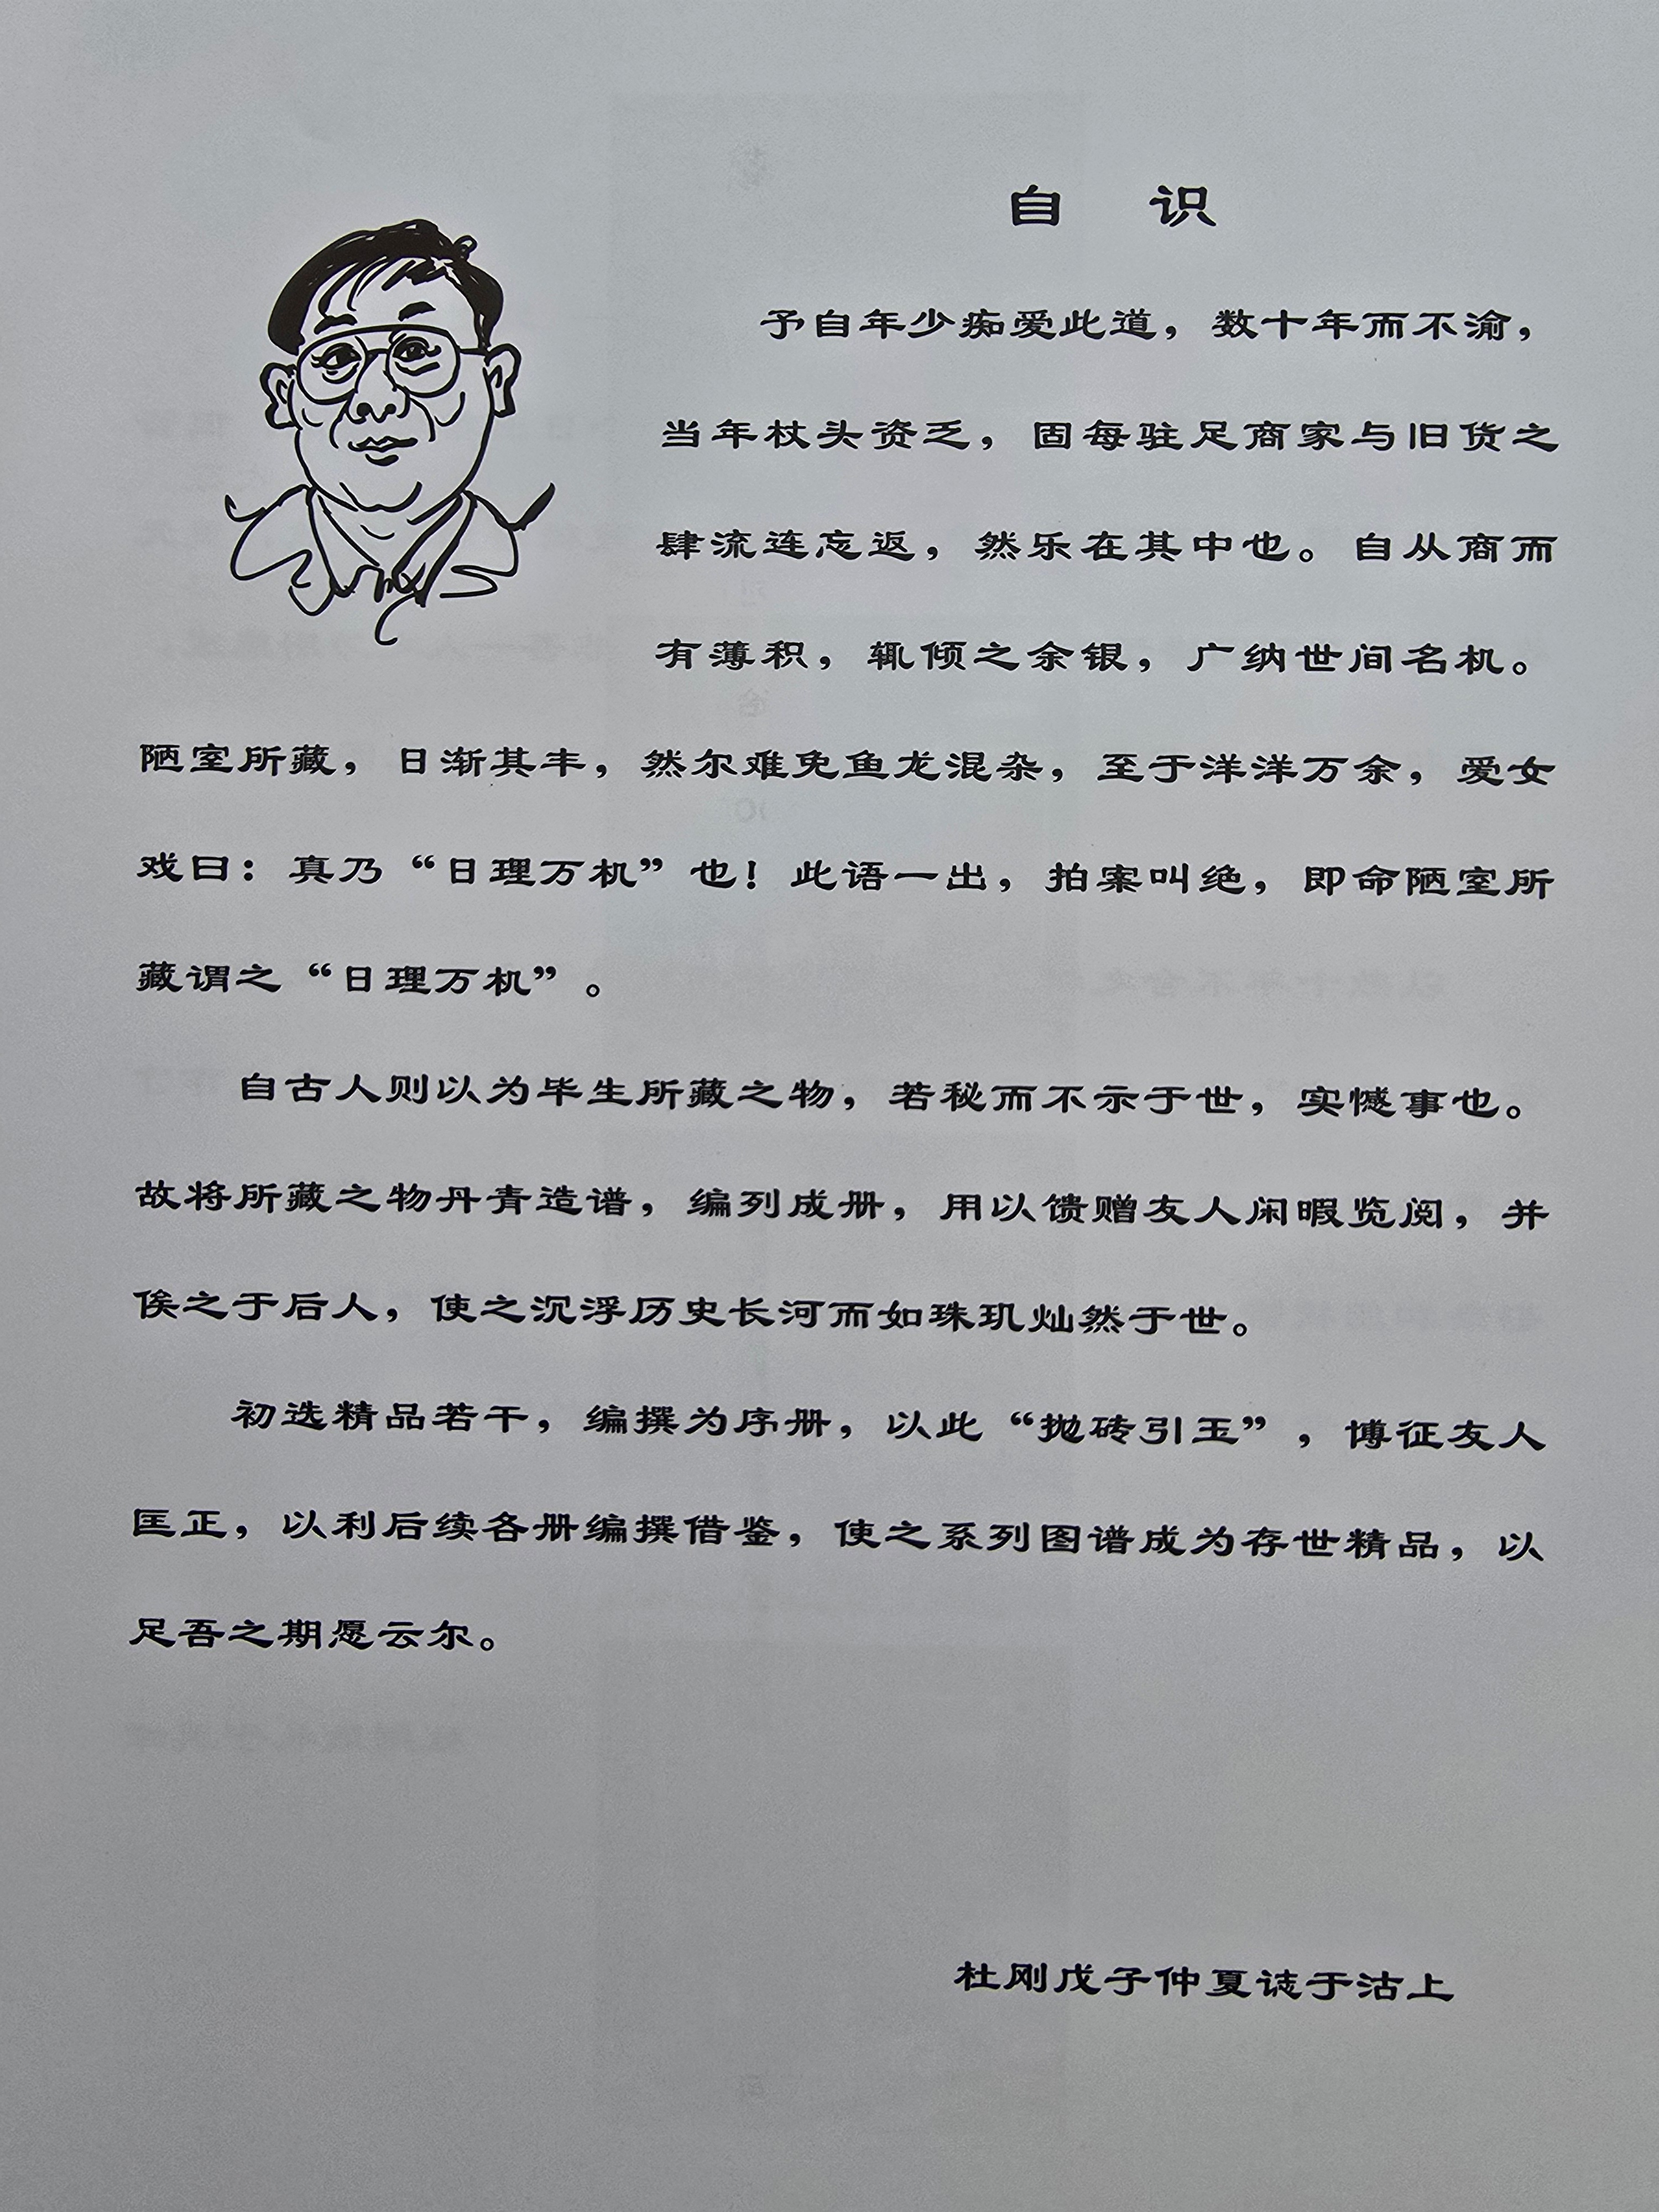 自 识
予自年少痴爱此道，数十年而不渝，
当年杖头资乏，固每驻足商家与旧货之
肆流连忘返，然乐在其中也。自从商而
有薄积，辄倾之余银，广纳世间名机。
陋室所藏，日渐其丰，然尔难免鱼龙混杂，至于洋洋万余，爱女
戏曰：真乃“日理万机”也！此语一出，拍案叫绝，即命陋室所
藏谓之“日理万机”。
自古人则以为毕生所藏之物，若秘而不示于世，实憾事也。
故将所藏之物丹青造谱，编列成册，用以馈赠友人闲暇览阅，并
俟之于后人，使之沉浮历史长河而如珠玑灿然于世。
初选精品若干，编撰为序册，以此“抛砖引玉”，博征友人
匡正，以利后续各册编撰借鉴，使之系列图谱成为存世精品，以
足吾之期愿云尔。
杜刚戊子仲夏誌于沽上